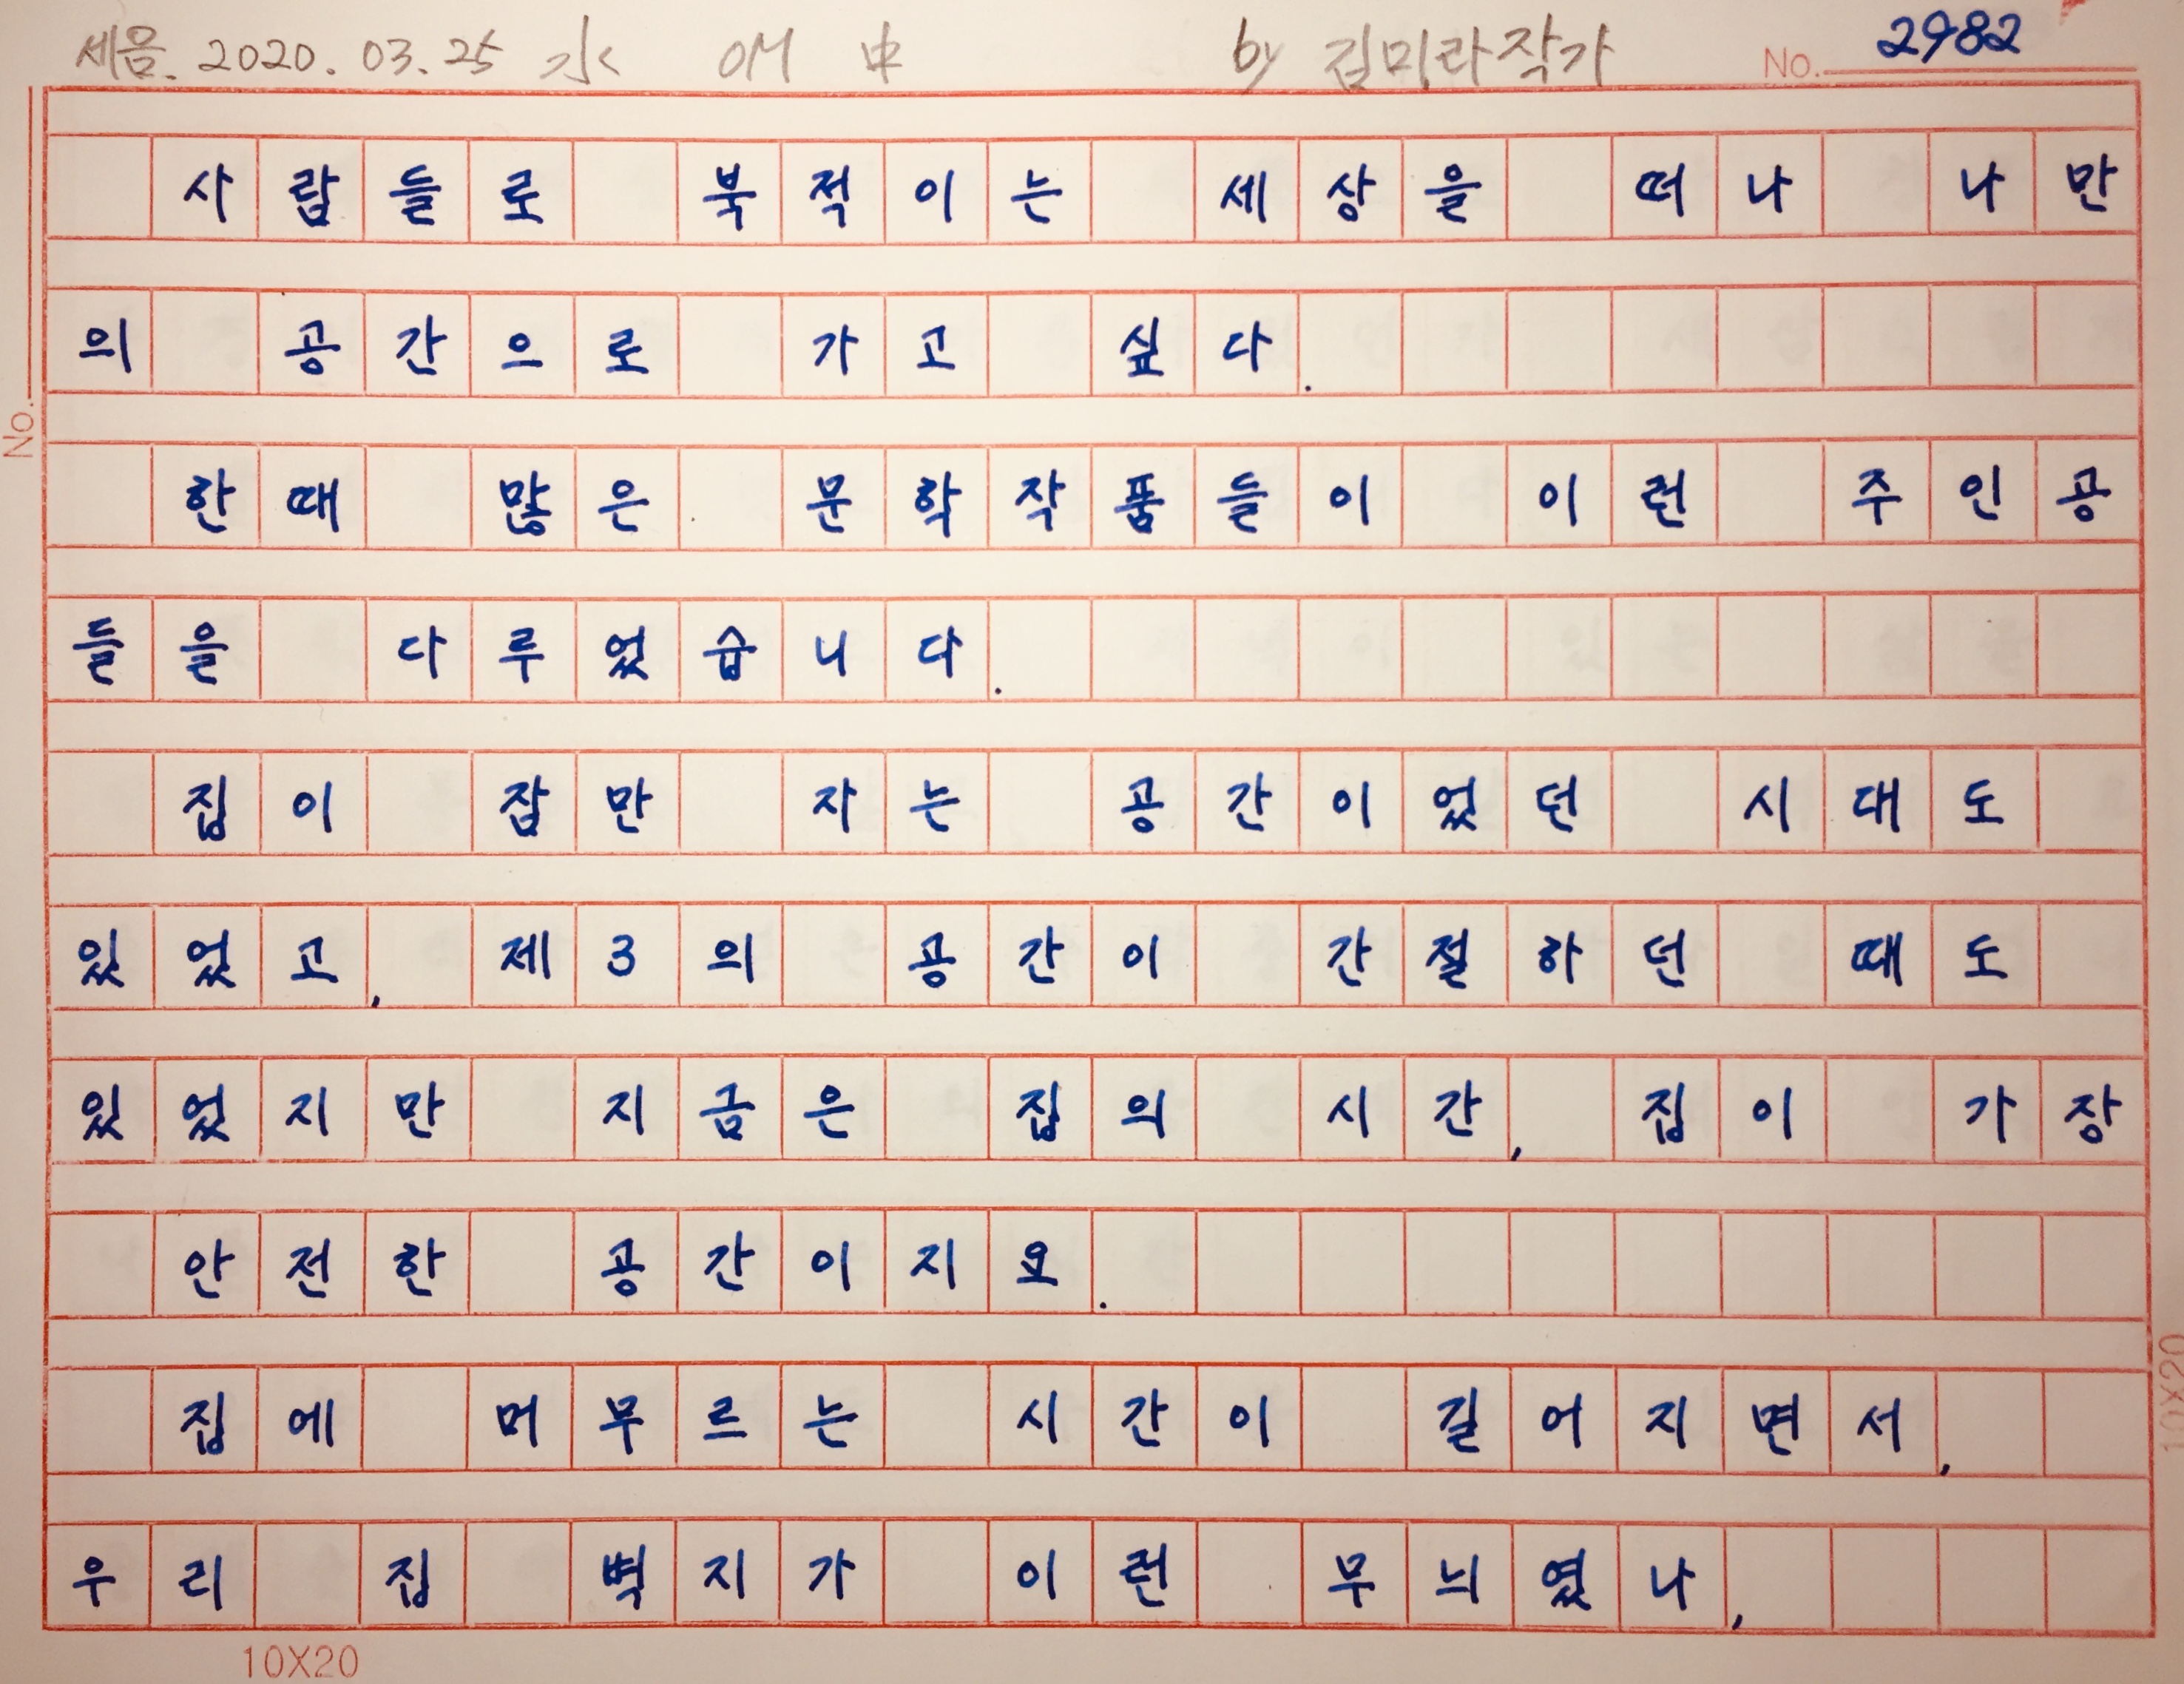 세음. 2020. 03. 25 水 OM 中 by 김미라작가 No. 2982
사람들로 북적이는 세상을 떠나 나만
의 공간으로 가고 싶다.
한때 많은 문학작품들이 이런 주인공
들을 다루었습니다.
집이 잠만 자는 공간이었던 시대도
있었고, 제3의 공간이 간절하던 때도
있었지만 지금은 집의 시간, 집이 가장
안전한 공간이지요.
집에 머무르는 시간이 길어지면서,
우리 집 벽지가 이런 무늬였나,
No.
10X20
10X20